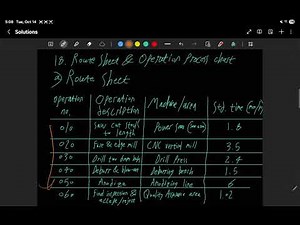 5:08 Tue, Oct 14
Solutions
18. Route Sheet & Operation Process chart
a) Route Sheet
Operation no. Operation description Machine/area Std. time
010 Saw cut to length Power saw 1.8
020 Face & edge mill CNC vertical mill 3.5
030 Drill two holes Drill Press 2.4
040 Deburr & Deburring bench 1.5
050 Anodize Anodizing line 6
060 Final inspection & accept/reject Quality Assurance area 1.02